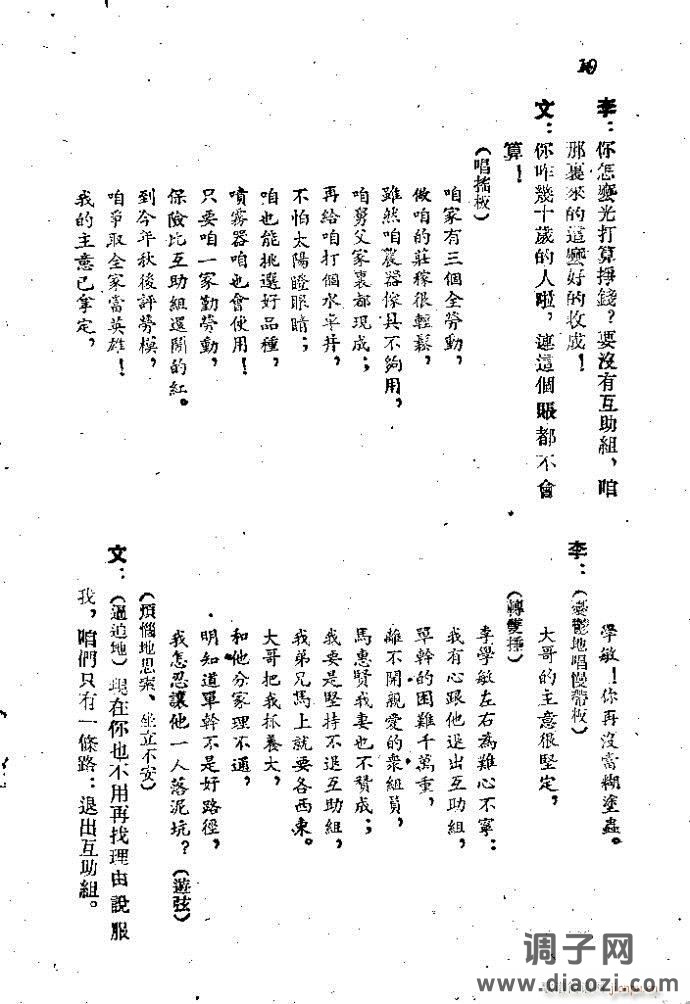 10
李：你怎麽光打算掙錢？要沒有互助組，咱
那裏來的這麽好的收成！
文：你咋幾十歲的人啦，連這個賬都不會
算！
（唱搖板）
咱家有三個全勞動，
做咱的莊稼很輕鬆，
雖然咱農器傢具不夠用，
咱舅父家裏都現成；
再給咱打個水車井，
不怕太陽瞪眼睛；
咱也能挑選好品種，
噴霧器咱也會使用！
只要咱一家勤勞動，
保險比互助組還鬧的紅。
到今年秋後評勞模，
咱爭取全家當英雄！
我的主意已拿定，
學敏！你再沒當糊塗蟲。
李：（憂鬱地唱慢帶板）
大哥的主意很堅定，
（轉雙捶）
李學敏左右為難心不寧：
我有心跟他退出互助組，
單幹的困難千萬重，
離不開親愛的衆組員，
馬惠賢我妻也不贊成；
我要是堅持不退互助組，
我弟兄馬上就要各西東。
大哥把我抚養大，
和他分家理不通，
明知道單幹不是好路徑，
我怎忍讓他一人落泥坑？（遊弦）
（煩惱地思索、坐立不安）
文：（逼迫地）現在你也不用再找理由說服
我，咱們只有一條路：退出互助組。
调子网
www.diaozi.com